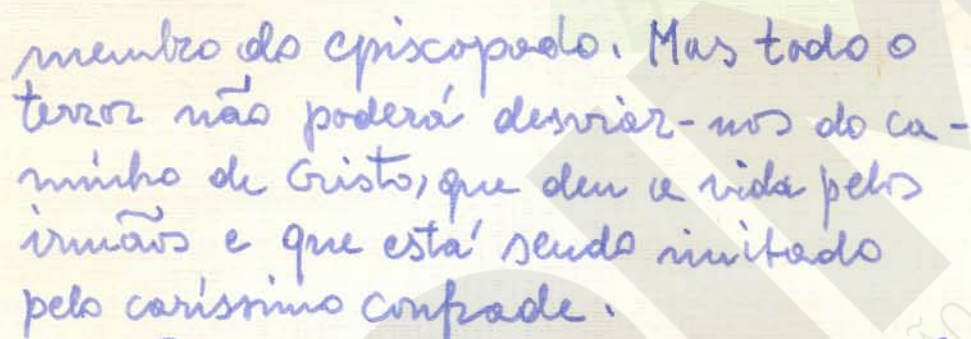 membro do episcopado. Mas todo o
terror não poderá desviar-nos do ca-
minho de Cristo, que deu a vida pelos
irmãos e que está sendo imitado
pelo caríssimo confrade.